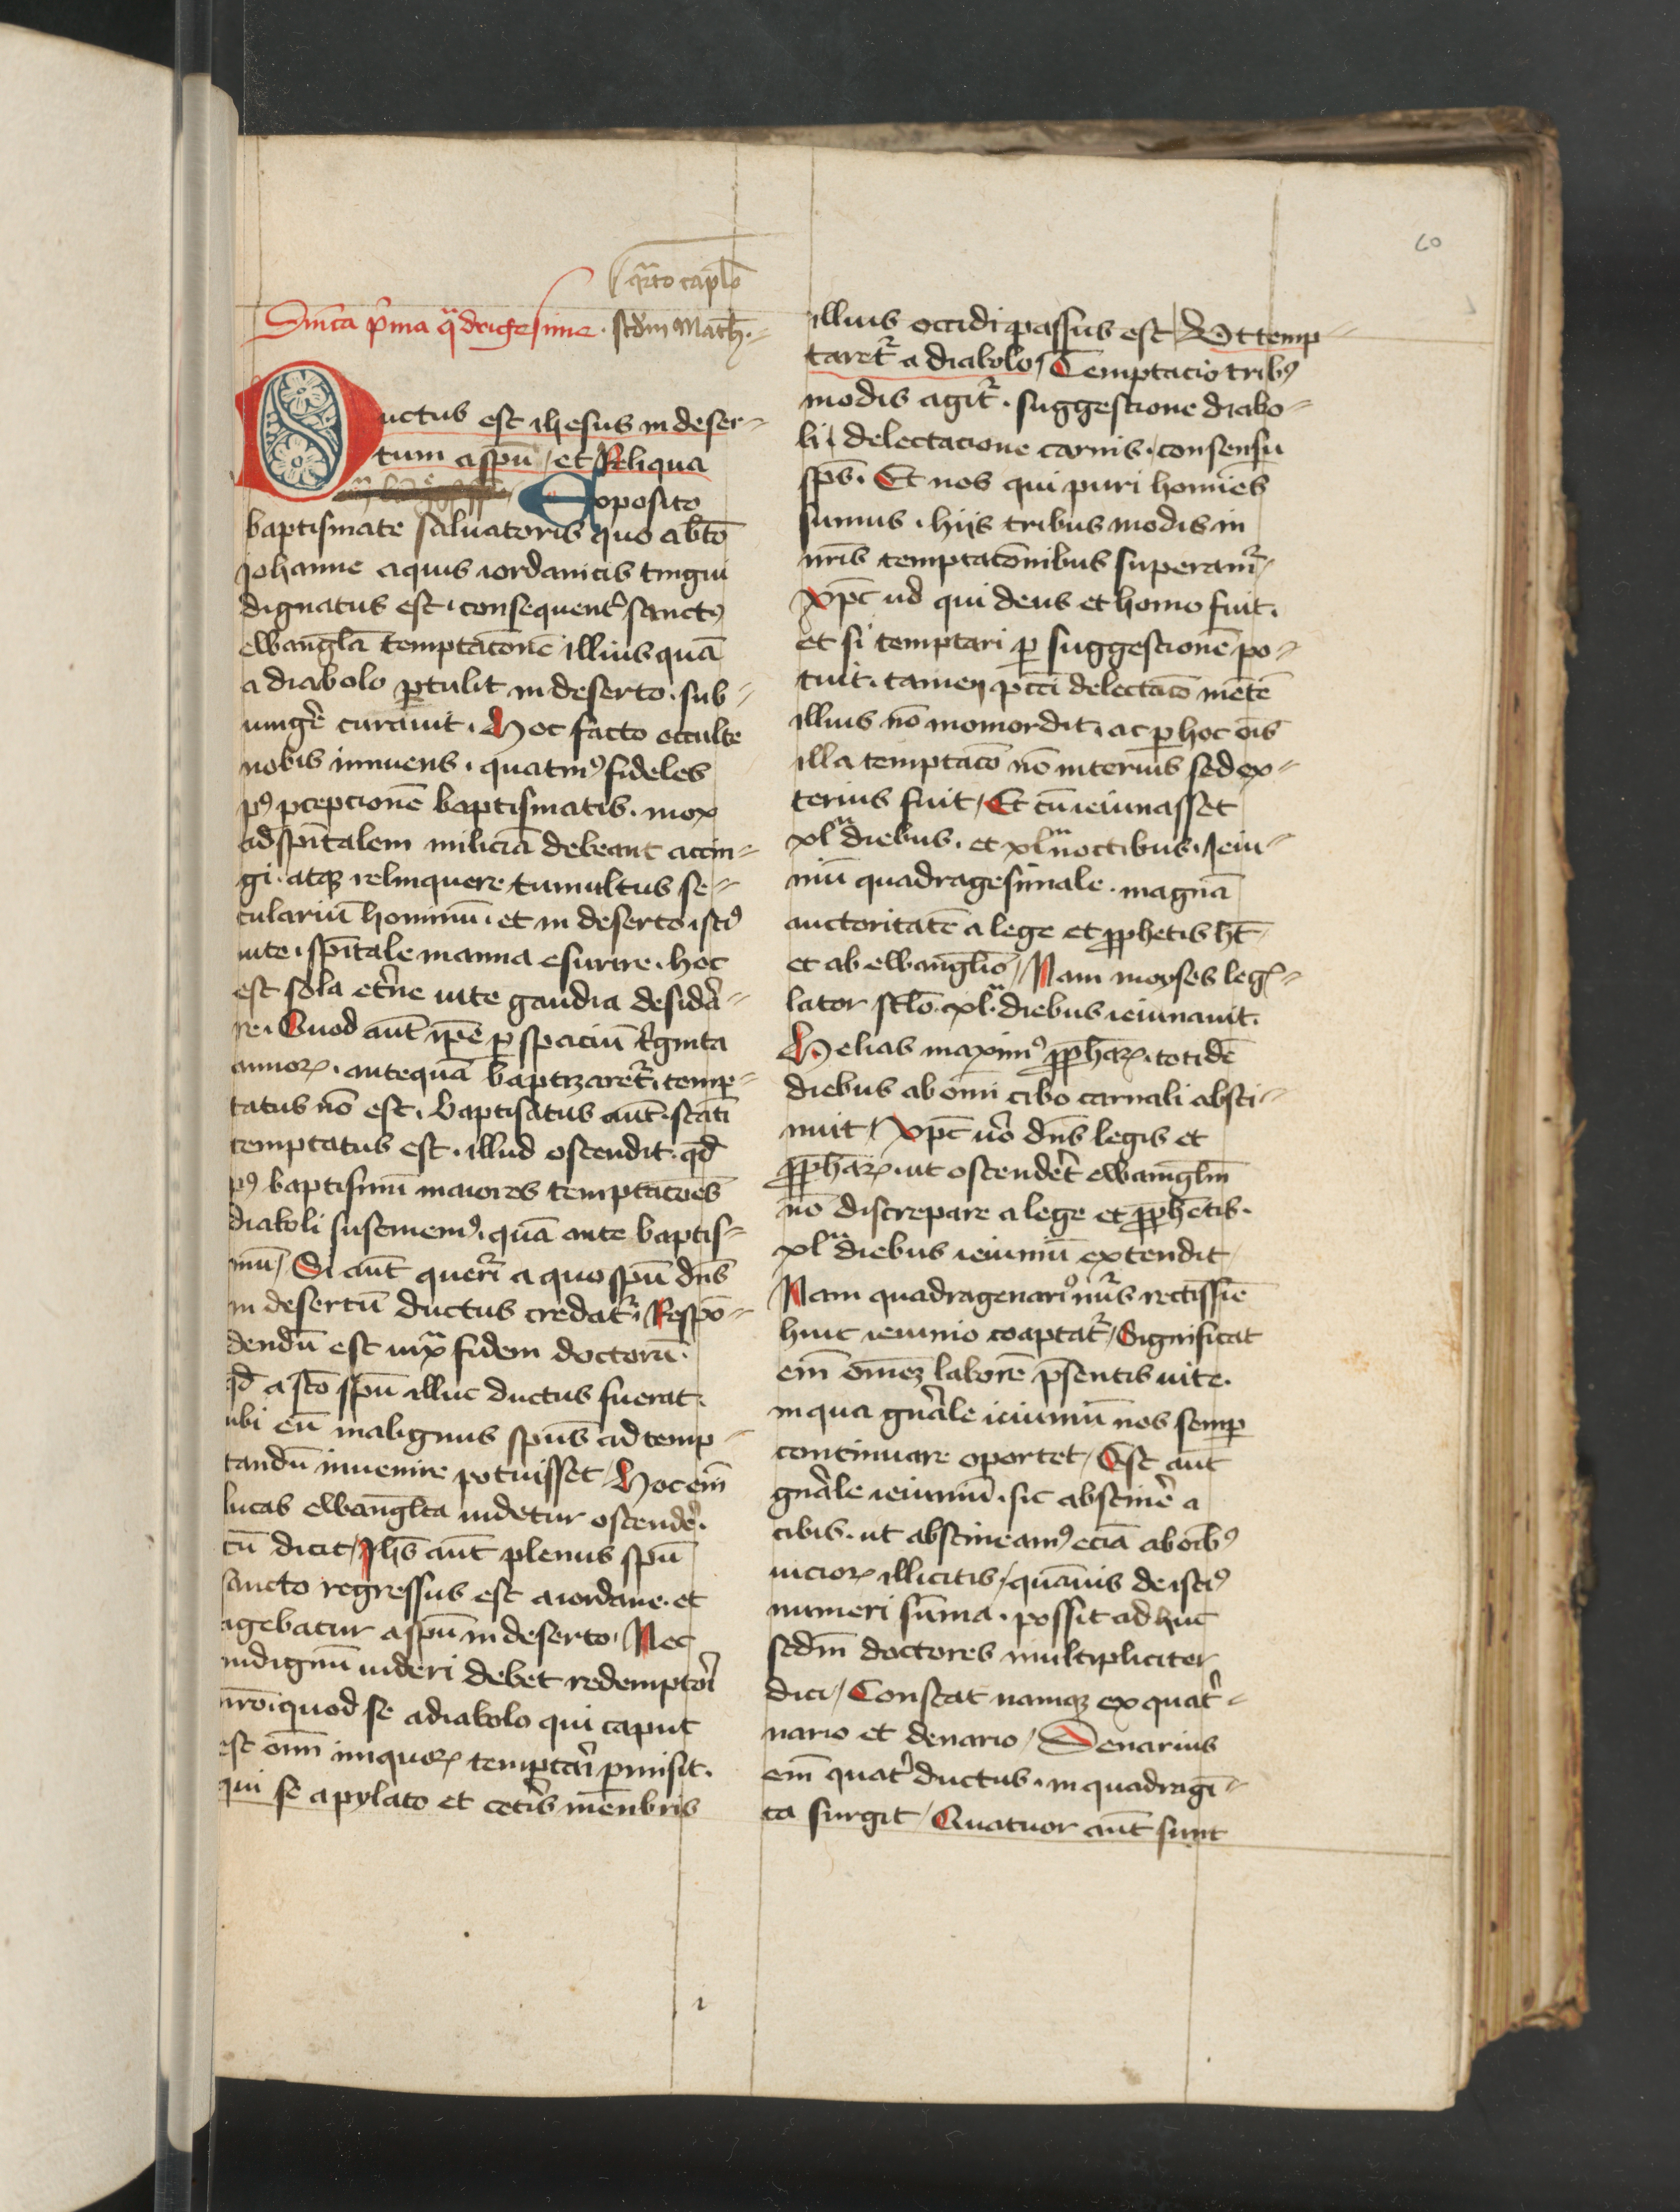 60
q̄rto capl̄o
Dn̄ica p̄ma q̄dragesime . scd̄m Math̄.
Ductus est ihesus in deser-
tum a spū / et Reliqua
Exposito
baptismate saluatoris quo abto
iohanne aquis iordanicis tingui
dignatus est . consequent̄ sanctꝰ
ewanglā temptatōnē illius quā
a diabolo ꝑtulit in deserto . sub-
iungē̄ curauit . Hoc facto occulte
nobis innuens . quatinꝰ fideles
pꝰ ꝑcepcionē baptismatis . mox
ad spūtalem miliciā debeant accin-
gi . atqꝫ relinquere tumultus se-
culariū hominū . et in deserto istiꝰ
uite . spūtale manna esurire . hoc
est sola et̄ne uite gaudia desidā-
re . Quod aūt ip̄e ꝑ spaciū tīginta
annoꝝ . antequā baptizaret̄ . temp-
tatus nō est . baptisatus aūt . statī
temptatus est . illud ostendit . qd̄
pꝰ baptismū maiores temptatōes
diaboli sustinemꝰ . quā ante baptis-
mū / Si aūt querit̄ a quo spū dn̄s
in desertū ductus credat̄ . Respō-
dendū est iux̄ fidem doctorū .
qd̄ a sc̄o spū illuc ductus fuerat .
ubi eū malignus spūs ad temp-
tandū inuenire potuisset / Hoc em̄
lucas ewanglꝭta uidetur ostendē̄ .
cū dicit / Ihs̄ aūt plenus spū
sancto regressus est a iordane . et
agebatur a spū in deserto / Nec
indignū uideri debet redemptōi
nrō . quod se a diabolo qui caput
est om̄i iniquoꝝ temptari ꝑmisit .
qui se a pylato et cetīs menbris
illius occidi passus est / Vt temp-
taret̄ a diabolo / Temptacio tribꝰ
modis agit̄ . suggestione diabo-
li . delectacione carnis . consensu
spūs . Et nos qui puri homīes
sumus . hijs tribus modis in
nr̄is temptatōnibus superam̄ /
Xp̄c ūo qui deus et homo fuit .
et si temptari ꝑ suggestionē po-
tuit . tamen pctī delectatō mētē
illius nō momordit . ac ꝑ hoc oīs
illa temptatō nō interius sed ex-
terius fuit / Et cū ieiunasset
xlᵃ diebus . et xlᵃ noctibus . Ieiu-
niū quadragesimale . magnā
auctoritatē a lege et ꝓphetis h̄t
et ab ewanglio / Nam moyses legꝭ-
lator scl̄o . xlᵃ diebus ieiunauit .
Helias maximꝰ ꝓphaꝝ . totidē
diebus ab omī cibo carnali absti-
nuit / Xp̄c ūo dn̄s legis et
ꝓphaꝝ . ut ostendet̄ ewanglm̄
nō discrepare a lege et ꝓphetis .
xlᵃ diebus ieiuniū extendit /
Nam quadragenariꝰ nu̅s rectissīe
huic ieiunio coaptat̄ / Significat
em̄ omēꝫ laborē pn̄sentis uite .
in qua gn̄ale ieiuniū nos semꝑ
continuare oportet / Est aūt
gn̄ale ieiuniū . sic abstinē̄ a
cibis . ut abstineamꝰ eciā ab oībꝰ
uicioꝝ illicitis / quāuis de istiꝰ
numeri sūma . possit ad huc
scdm̄ doctores multipliciter
dici / Constat namqꝫ ex quat̄-
nario et denario / Denarius
em̄ quat̄ ductus . in quadragī-
ta surgit / Quatuor aūt sunt
1